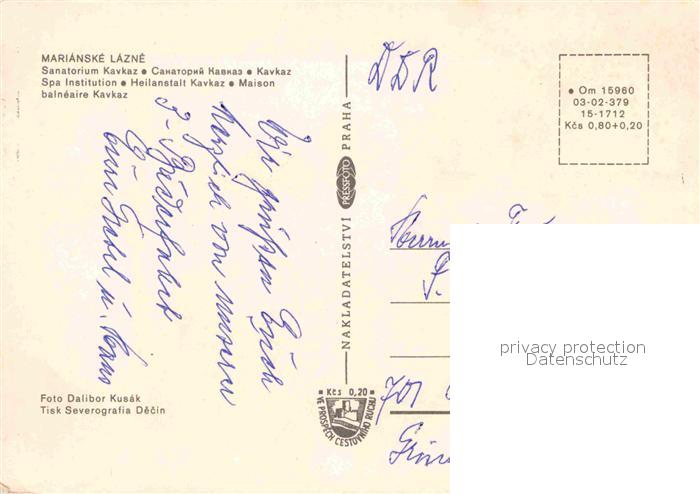 MARIÁNSKÉ LÁZNĚ
Sanatorium Kavkaz ● Санаторий Кавказ ● Kavkaz
Spa Institution ● Heilanstalt Kavkaz ● Maison
balnéaire Kavkaz
Wir grüßen Euch
herzlich von unserer
Bäderfahrt
Eure u. Hans
Foto Dalibor Kusák
Tisk Severografia Děčín
NAKLADATELSTVÍ PRESSFOTO PRAHA
● Kčs 0,20 ●
VE PROSPĚCH CESTOVNÍHO RUCHU
DDR
● Om 15960
03-02-379
15-1712
Kčs 0,80+0,20
Herrn
701
privacy protection
Datenschutz